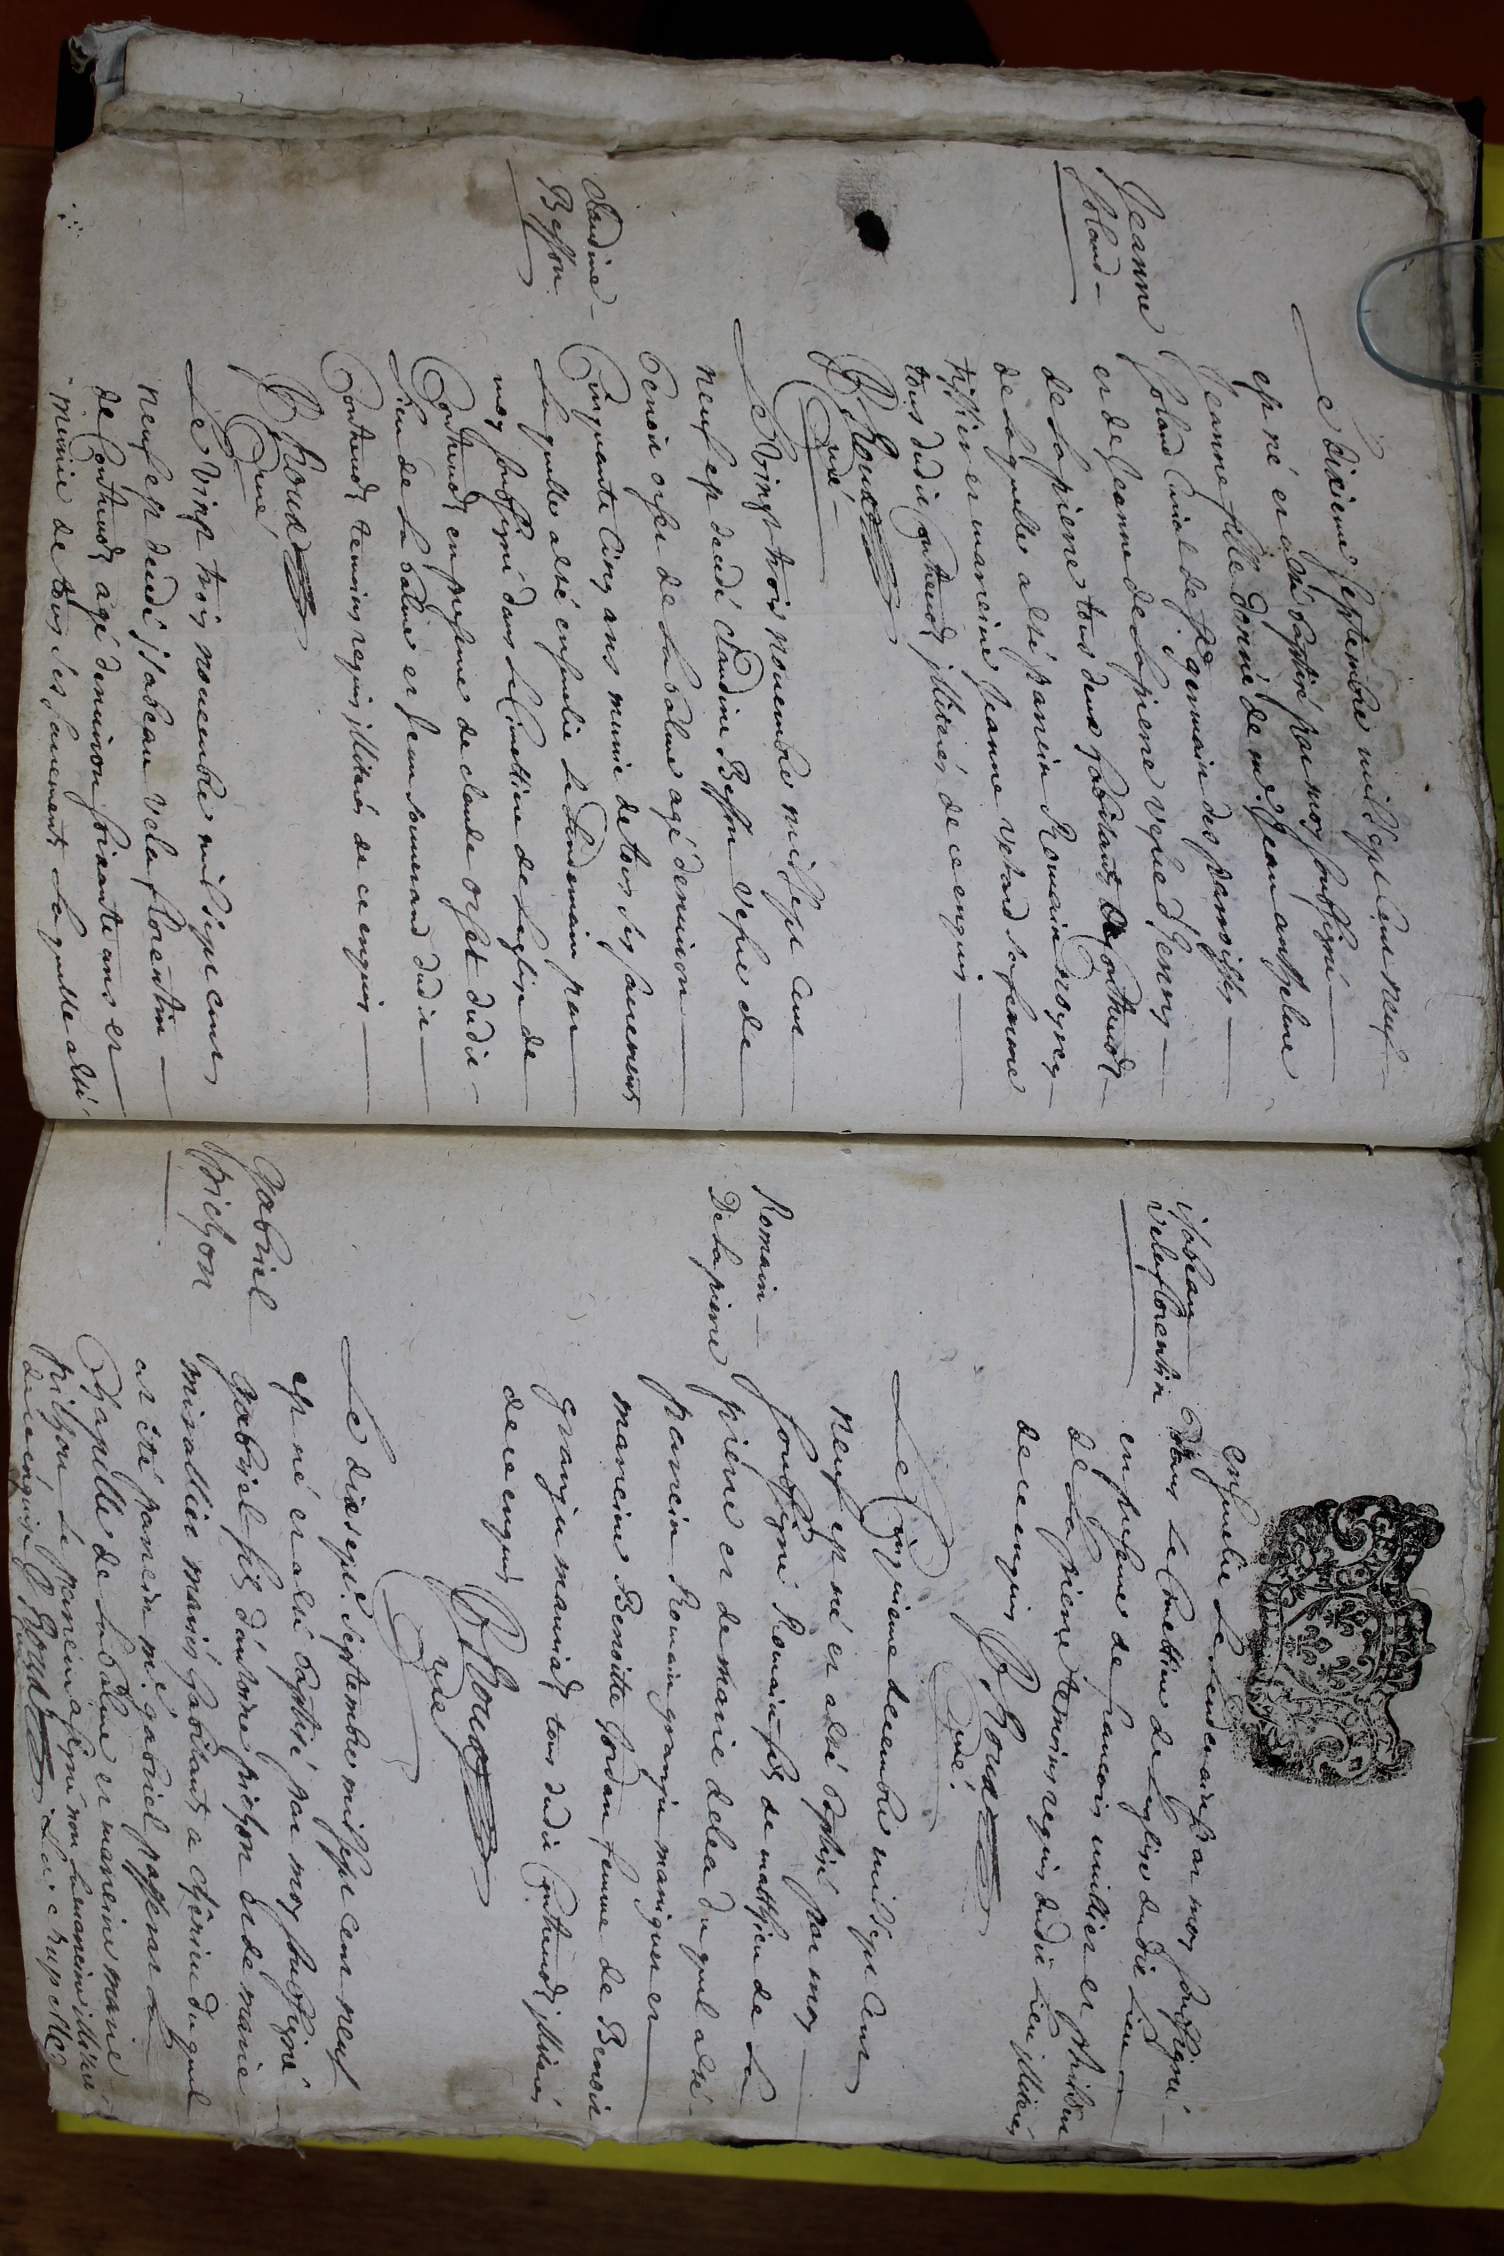 Jeanne
Joland
Le dixieme septembre mil sept cent neuf
est né et a été baptisé par moy soubsigné
Jeanne fille donné de mr. Jean anthelme
Joland Curial de St germain des parroisses
et de Jeanne de Lapierre vefve d'henry
de Lapierre tous deux habitants de Contrevoz
de laquelle a esté parrein Romain
et marreine Jeanne sa femme
tous dudit Contrevoz illiterés de ce enquis
B. Roux
Curé
Claudine
Besson
Le vingt trois novembre mil sept cent
neuf est decedé claudine Besson vefve de
benoit orset de La balme agé d'environ
Cinquante Cinq ans munie de tous ses sacrements
Laquelle a esté ensevelie Le Lendemain par
moy soubsigné dans Le Cimettiere de Leglise de
Contrevoz en presence de claude orset dudit
Lieu de La balme et Jean dudit
Contrevoz temoins requis illiterés de ce enquis
B. Roux
Curé
Le vingt trois novembre mil sept cent
neuf est decedé isabeau velaflorentin
de Contrevoz agé denviron soixante ans et
munie de tous ses sacrements Laquelle a esté
isabeau
velaflorentin
ensevelie Le Lendemain par moy soubsigné
dans Le Cimettiere de Leglise dudit Lieu
en presence de francois et
de La pierre temoins requis dudit Lieu illiterés
de ce enquis B. Roux
Curé
Romain
De Lapierre
Le Cinquieme decembre mil sept Cent
neuf est né et a esté baptisé par moy
soubsigné Romain fils de matthieu de La
pierre et de marie duquel a esté
parrein Romain
marreine Benoitte femme de Benoit
tous dudit Contrevoz illiterés
de ce enquis
B. Roux
curé
Gabriel
pichon
Le dixsept septembre mil sept cens neuf
est né et a esté baptisé par moy soubsigné
gabriel fils d'antoine pichon et de marie
mariés habitants a duquel
at eté parrein mr. gabriel
Chapelle de La balme et marreine marie
pichon Le parrein a signé non La marreine illiteré
de ce enquise B Roux